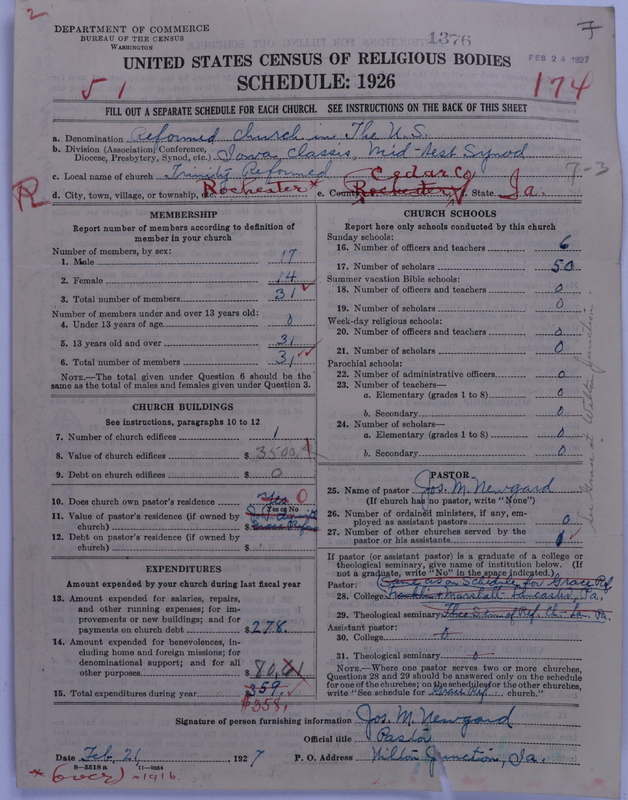 2
DEPARTMENT OF COMMERCE
BUREAU OF THE CENSUS
WASHINGTON
1376
FEB 24 1927
7
UNITED STATES CENSUS OF RELIGIOUS BODIES
51
SCHEDULE: 1926
174
FILL OUT A SEPARATE SCHEDULE FOR EACH CHURCH. SEE INSTRUCTIONS ON THE BACK OF THIS SHEET
a. Denomination Reformed Church in The U.S.
b. Division (Association, Conference, Diocese, Presbytery, Synod, etc.) Iowa Classis, Mid-West Synod
c. Local name of church Trinity Reformed
7-3
R
Cedar Co
d. City, town, village, or township, etc. Rochester x e. County Rochester f. State Ia.
MEMBERSHIP
Report number of members according to definition of
member in your church
Number of members, by sex:
1. Male 17
2. Female 14
3. Total number of members 31
Number of members under and over 13 years old:
4. Under 13 years of age 0
5. 13 years old and over 31
6. Total number of members 31
NOTE.—The total given under Question 6 should be the
same as the total of males and females given under Question 3.
CHURCH BUILDINGS
See instructions, paragraphs 10 to 12
7. Number of church edifices 1
8. Value of church edifices $ 3500.
9. Debt on church edifices $ 0
10. Does church own pastor's residence Yes 0
Yes or No
11. Value of pastor's residence (if owned by
church) $
12. Debt on pastor's residence (if owned by
church) $
EXPENDITURES
Amount expended by your church during last fiscal year
13. Amount expended for salaries, repairs,
and other running expenses; for im-
provements or new buildings; and for
payments on church debt $ 278.
14. Amount expended for benevolences, in-
cluding home and foreign missions; for
denominational support; and for all
other purposes $ 80.01
15. Total expenditures during year 359.
$358.
CHURCH SCHOOLS
Report here only schools conducted by this church
Sunday schools:
16. Number of officers and teachers 6
17. Number of scholars 50
Summer vacation Bible schools:
18. Number of officers and teachers 0
19. Number of scholars 0
Week-day religious schools:
20. Number of officers and teachers 0
21. Number of scholars 0
Parochial schools:
22. Number of administrative officers 0
23. Number of teachers—
a. Elementary (grades 1 to 8) 0
b. Secondary 0
24. Number of scholars—
a. Elementary (grades 1 to 8) 0
b. Secondary 0
PASTOR
25. Name of pastor Jos. M. Newgard
(If church has no pastor, write "None")
26. Number of ordained ministers, if any, em-
ployed as assistant pastors 0
27. Number of other churches served by the
pastor or his assistants 1
If pastor (or assistant pastor) is a graduate of a college or
theological seminary, give name of institution below. (If
not a graduate, write "No" in the space indicated.)
Pastor: Same as on Schedule for Grace Ref.
28. College Franklin & Marshall Lancaster, Pa.
29. Theological seminary Theo Sem of Ref. Ch. La. Pa.
Assistant pastor:
30. College 0
31. Theological seminary 0
NOTE.—Where one pastor serves two or more churches,
Questions 28 and 29 should be answered only on the schedule
for one of the churches; on the schedules for the other churches,
write "See schedule for Grace Ref. church."
Signature of person furnishing information Jos. M. Newgard
Official title Pastor
Date Feb. 21, 1927 P. O. Address Wilton Junction, Ia.
8—5518a 11—9054
* (over) 1916